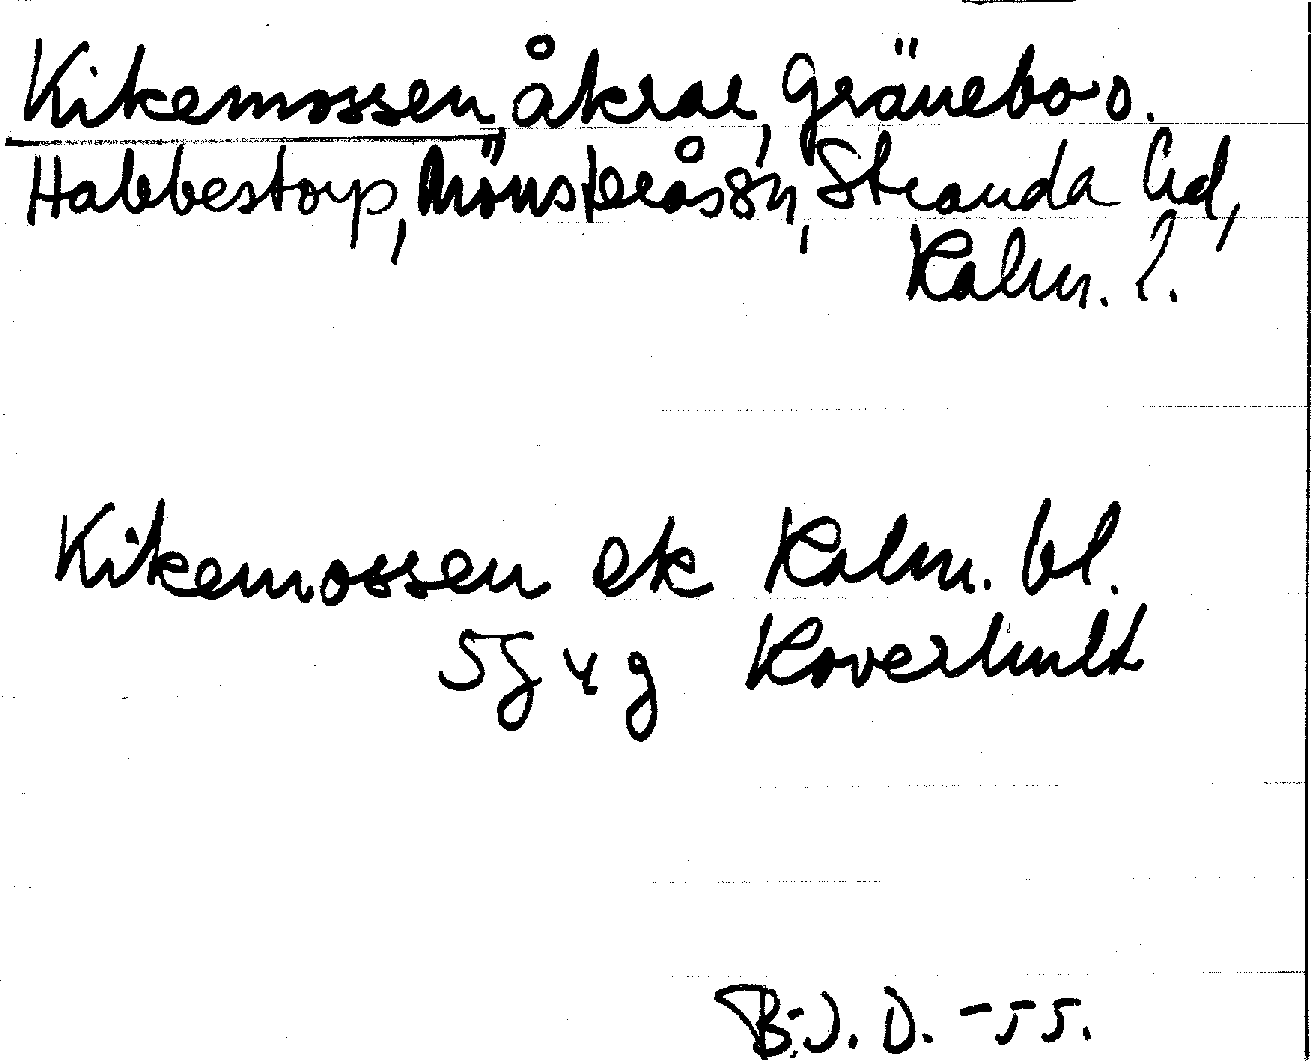 Kikemossen, åkrar, Gränebo o.
Habbestorp, Mönsterås sn, Stranda hd,
Kalm. l.
Kikemossen ek Kalm. bl.
5 g 4 g Koverhult
B. J. D. -55.